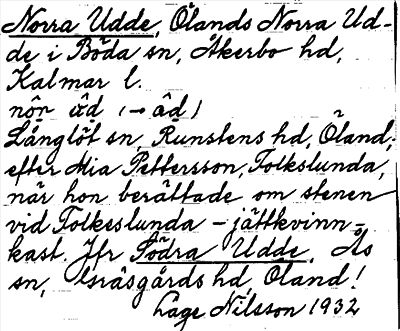 Norra Udde, Ölands Norra Ud-
de i Böda sn, Åkerbo hd,
Kalmar l.
nôr æ̂d (→ âd)
Långlöt sn, Runstens hd, Öland,
efter Mia Pettersson, Folkslunda,
när hon berättade om stenen
vid Folkeslunda – jättkvinn-
kast. Jfr Södra Udde, Ås
sn, Gräsgårds hd, Öland!
Lage Nilsson 1932